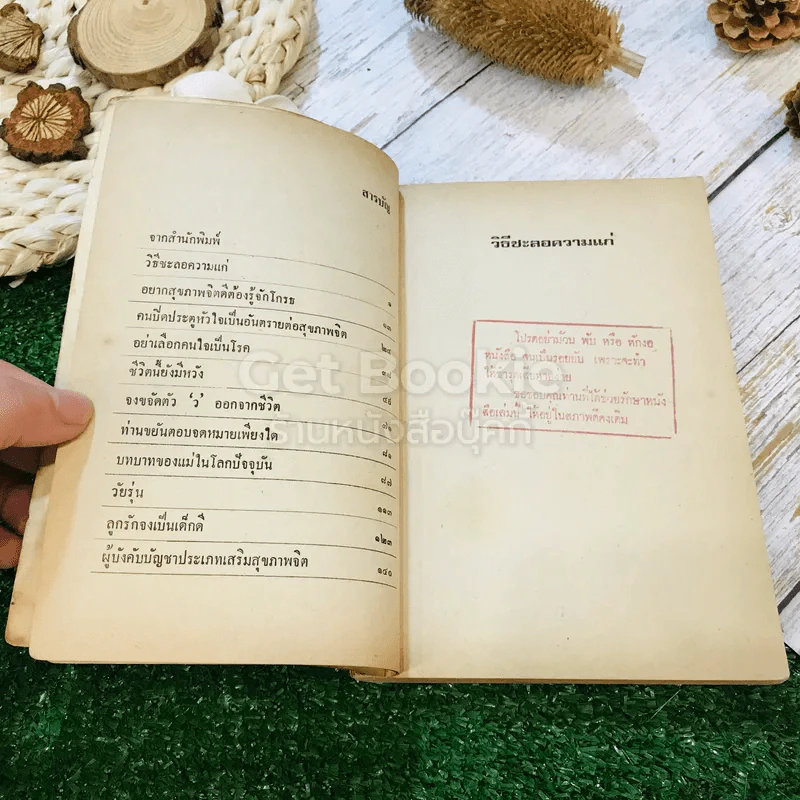 สารบัญ
จากสำนักพิมพ์
วิธีชะลอความแก่ ๑
อยากสุขภาพจิตดีต้องรู้จักโกรธ ๑๓
คนปิดประตูหัวใจเป็นอันตรายต่อสุขภาพจิต ๒๔
อย่าเลือกคนใจเป็นโรค
ชีวิตนี้ยังมีหวัง
จงขจัดตัว ‘ว’ ออกจากชีวิต
ท่านขยันตอบจดหมายเพียงใด ๘๑
บทบาทของแม่ในโลกปัจจุบัน ๘๗
วัยรุ่น ๑๑๓
ลูกรักจงเป็นเด็กดี ๑๒๓
ผู้บังคับบัญชาประเภทเสริมสุขภาพจิต ๑๔๐
วิธีชะลอความแก่
โปรดอย่าม้วน พับ หรือ หักงอ
หนังสือ จนเป็นรอยยับ เพราะจะทำ
ให้ชำรุดเสียหายง่าย
ขอขอบคุณท่านที่ได้ช่วยรักษาหนัง
สือเล่มนี้ ให้อยู่ในสภาพดีคงเดิม
Get Bookie
ร้านหนังสือบุ๊คกี้